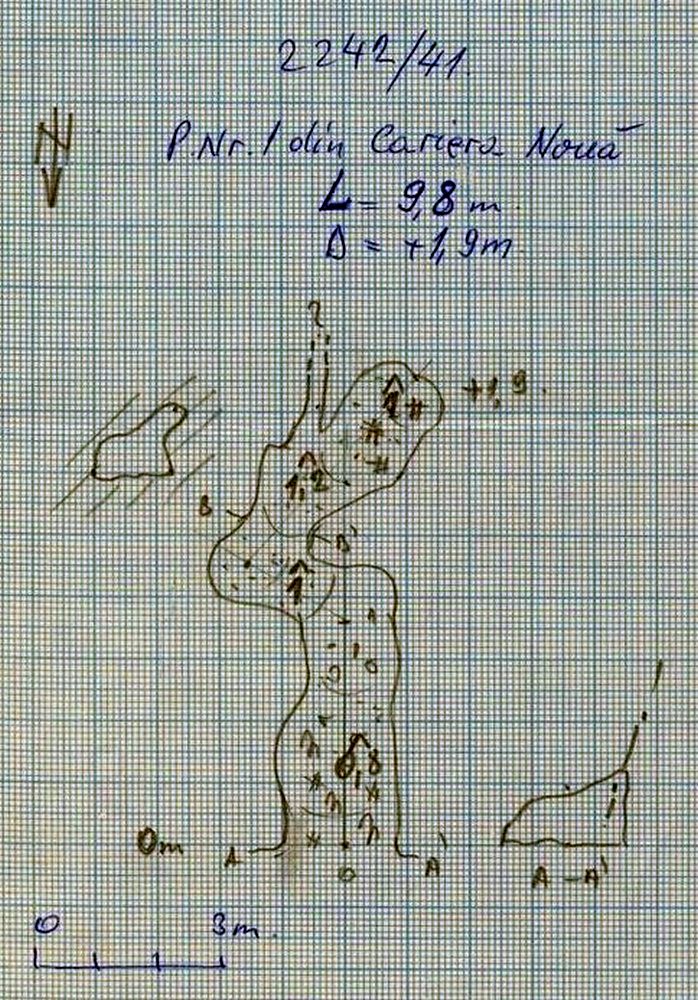 2242/41.
N
P.Nr.1 din Cariera Nouă
L = 9,8 m
D = +1,9m
?
+1,9.
1
1,2
B
B'
1
0,8
0m
A
0
A'
A - A'
0
3m.